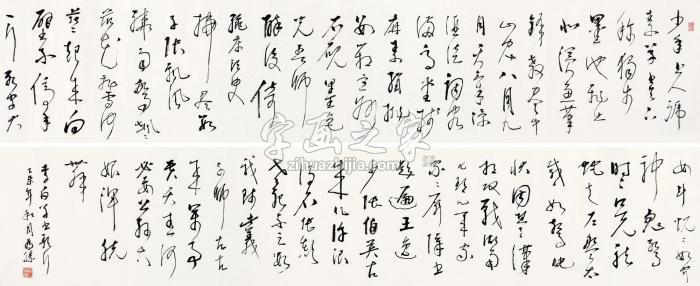 少年上人號
懷素草書天下
稱獨步
墨池飛出
北溟魚筆
鋒殺盡中
山兔八月九
月天氣涼
酒徒詞客
滿高堂箋
麻素絹排
數箱宣州
石硯墨色
光吾師
醉後倚
繩床須臾
掃盡數
千張飄風
驟雨驚颯颯
落花飛雪何
茫茫起來向
壁不停手
一行數字大
如斗怳怳如聞
神鬼驚
時時只見龍
蛇走左盤右
蹙如驚電
狀同楚漢
相攻戰湖南
七郡凡幾家
家家屏障書
題遍王逸
少張伯英古
來幾許浪
得名張顛
老死不足數
我師此義
不師古古
來萬事
貴天生何
必要公孫大
娘渾脫
舞
李白草書歌行
年秋月
字画之家
zihuazhijia.com